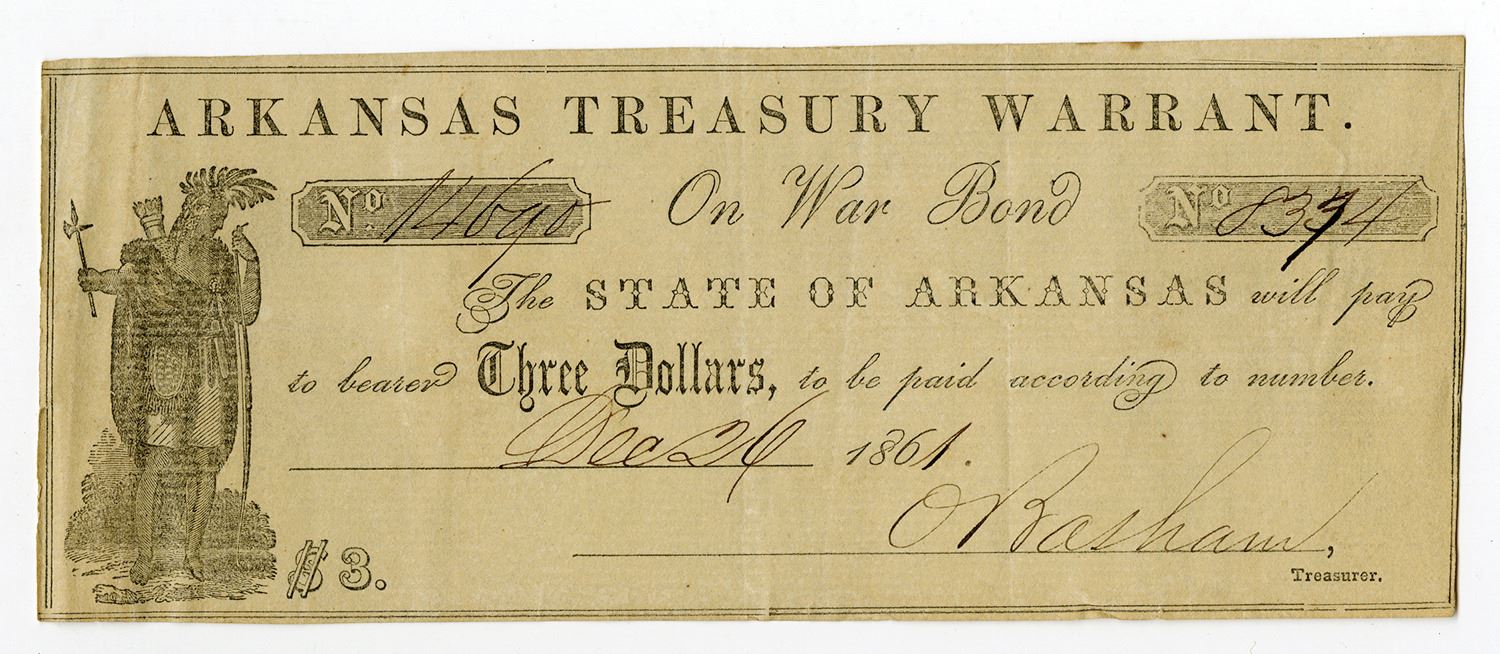 ARKANSAS TREASURY WARRANT.
No. 14690 On War Bond No 8334
The STATE OF ARKANSAS will pay
to bearer Three Dollars, to be paid according to number.
Dec 26 1861.
O Basham,
Treasurer.
$3.